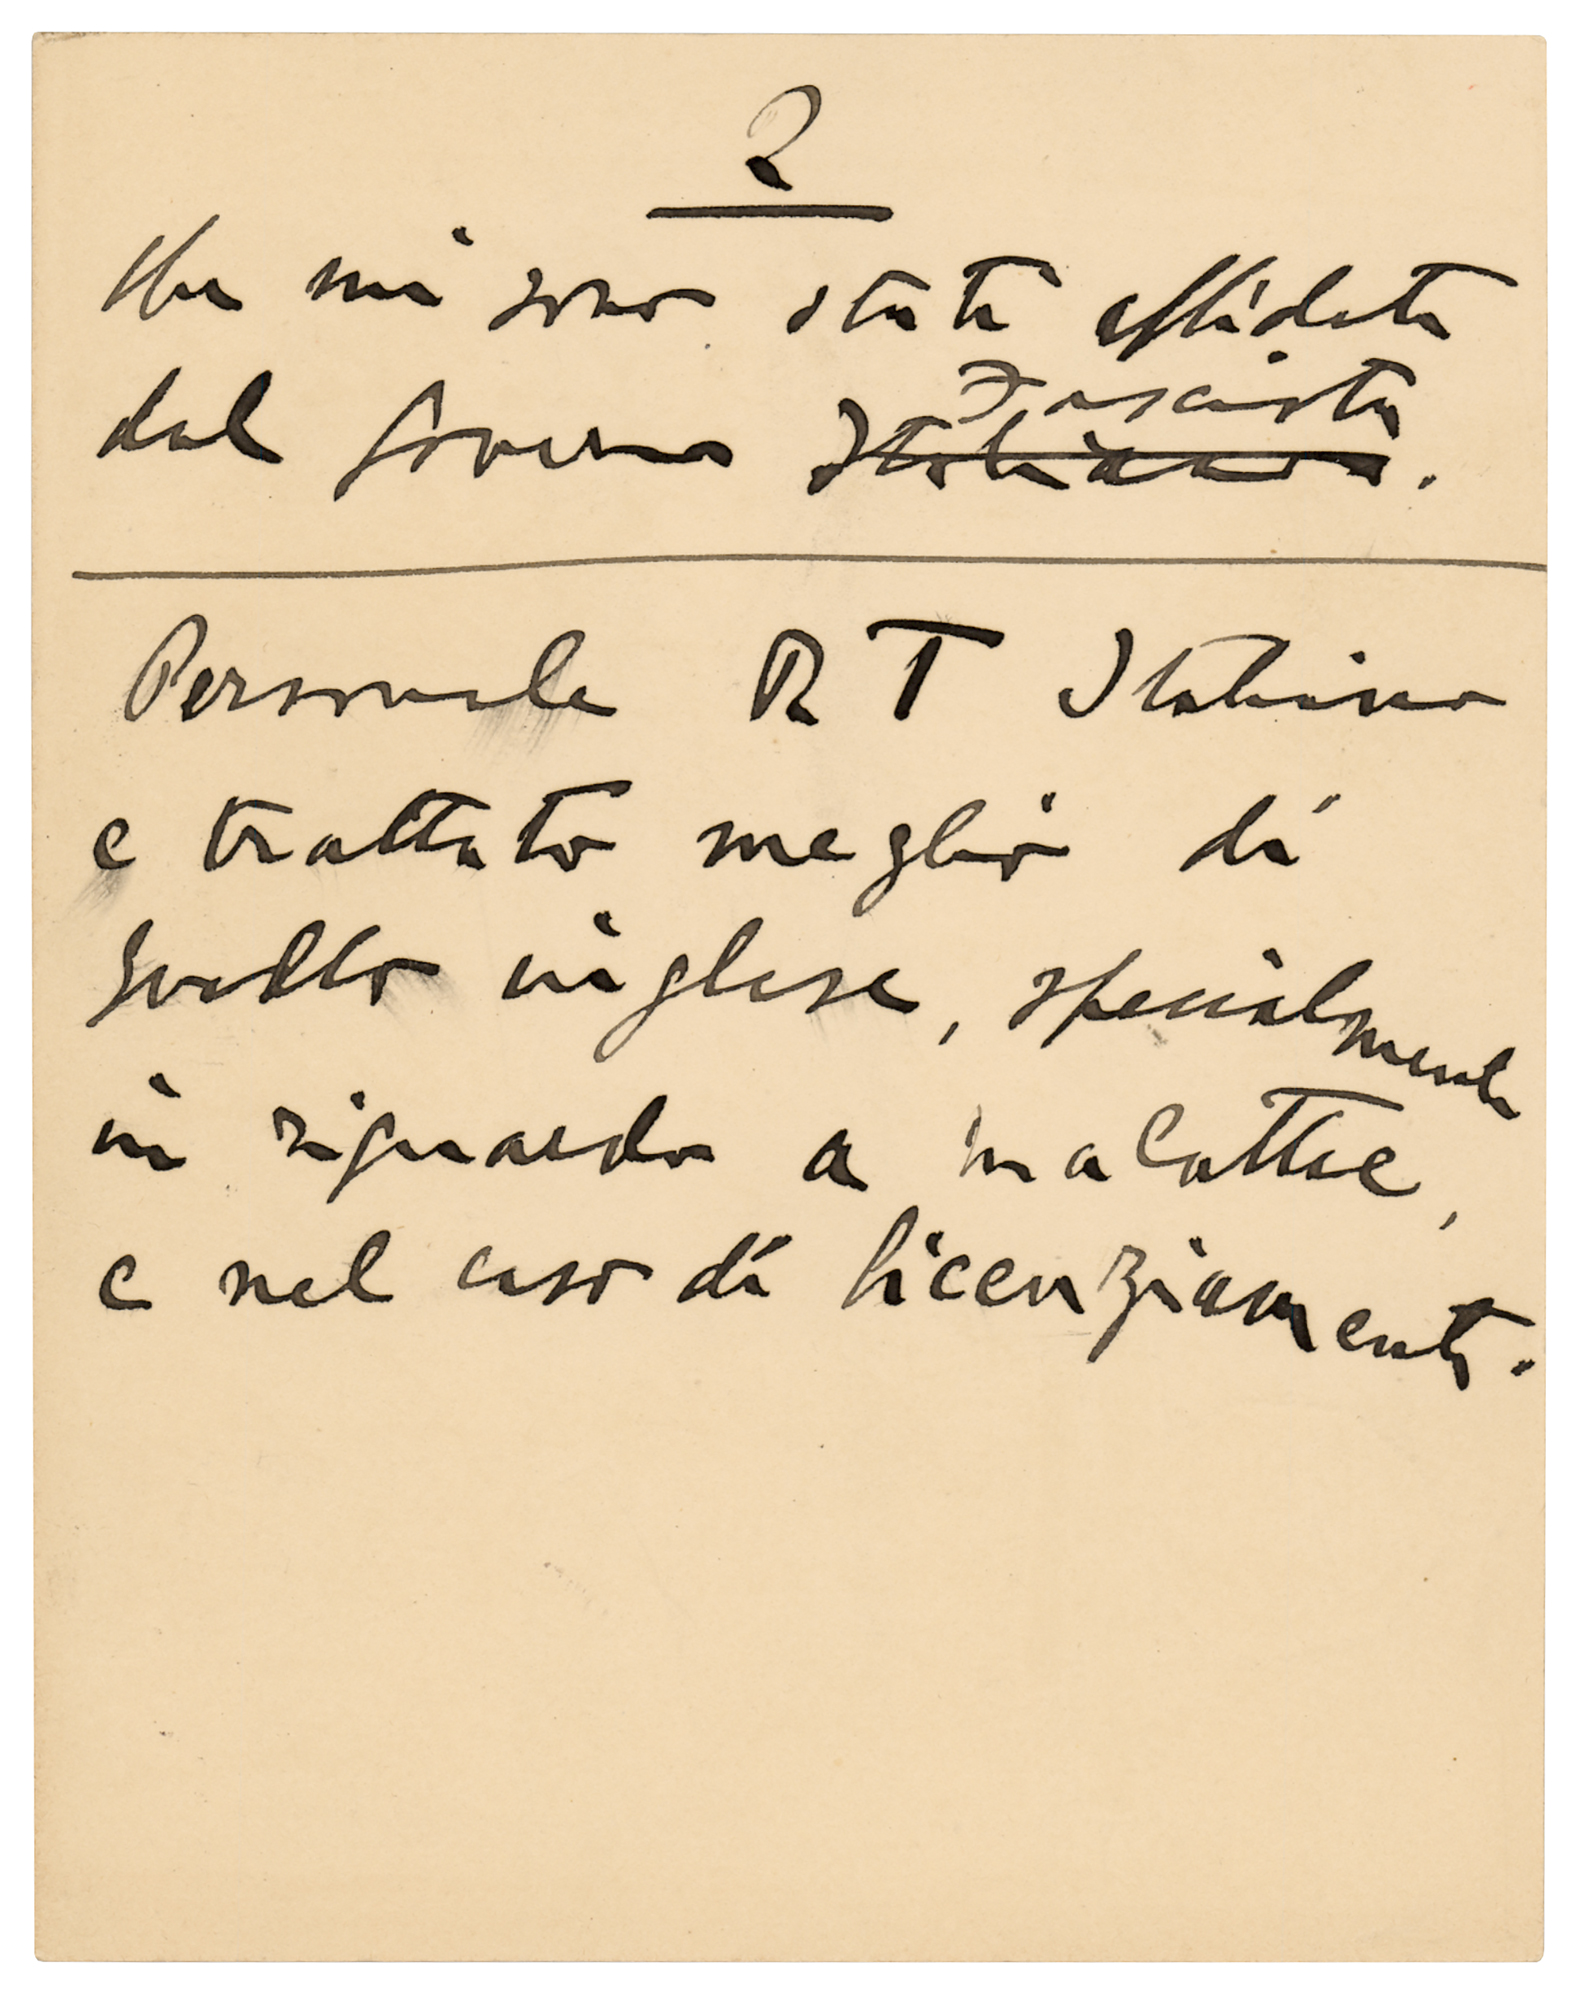 2
che mi sono state affidate
dal Governo Fascista
Italiano.
Personale R T Italiano
e trattato meglio di
quello inglese, specialmente
in riguardo a malattie,
e nel caso di licenziamenti.